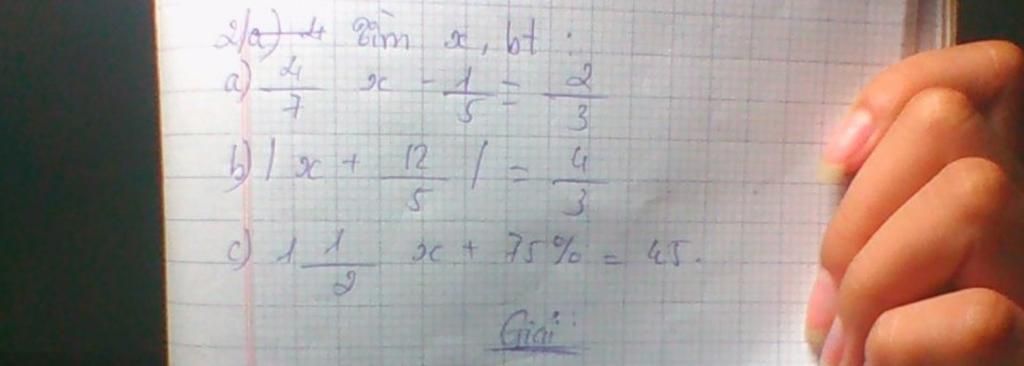 2/a) 4 Tìm x, bt :
a) 4/7 x - 1/5 = 2/3
b) | x + 12/5 | = 4/3
c) 1 1/2 x + 75% = 45.
Giải :